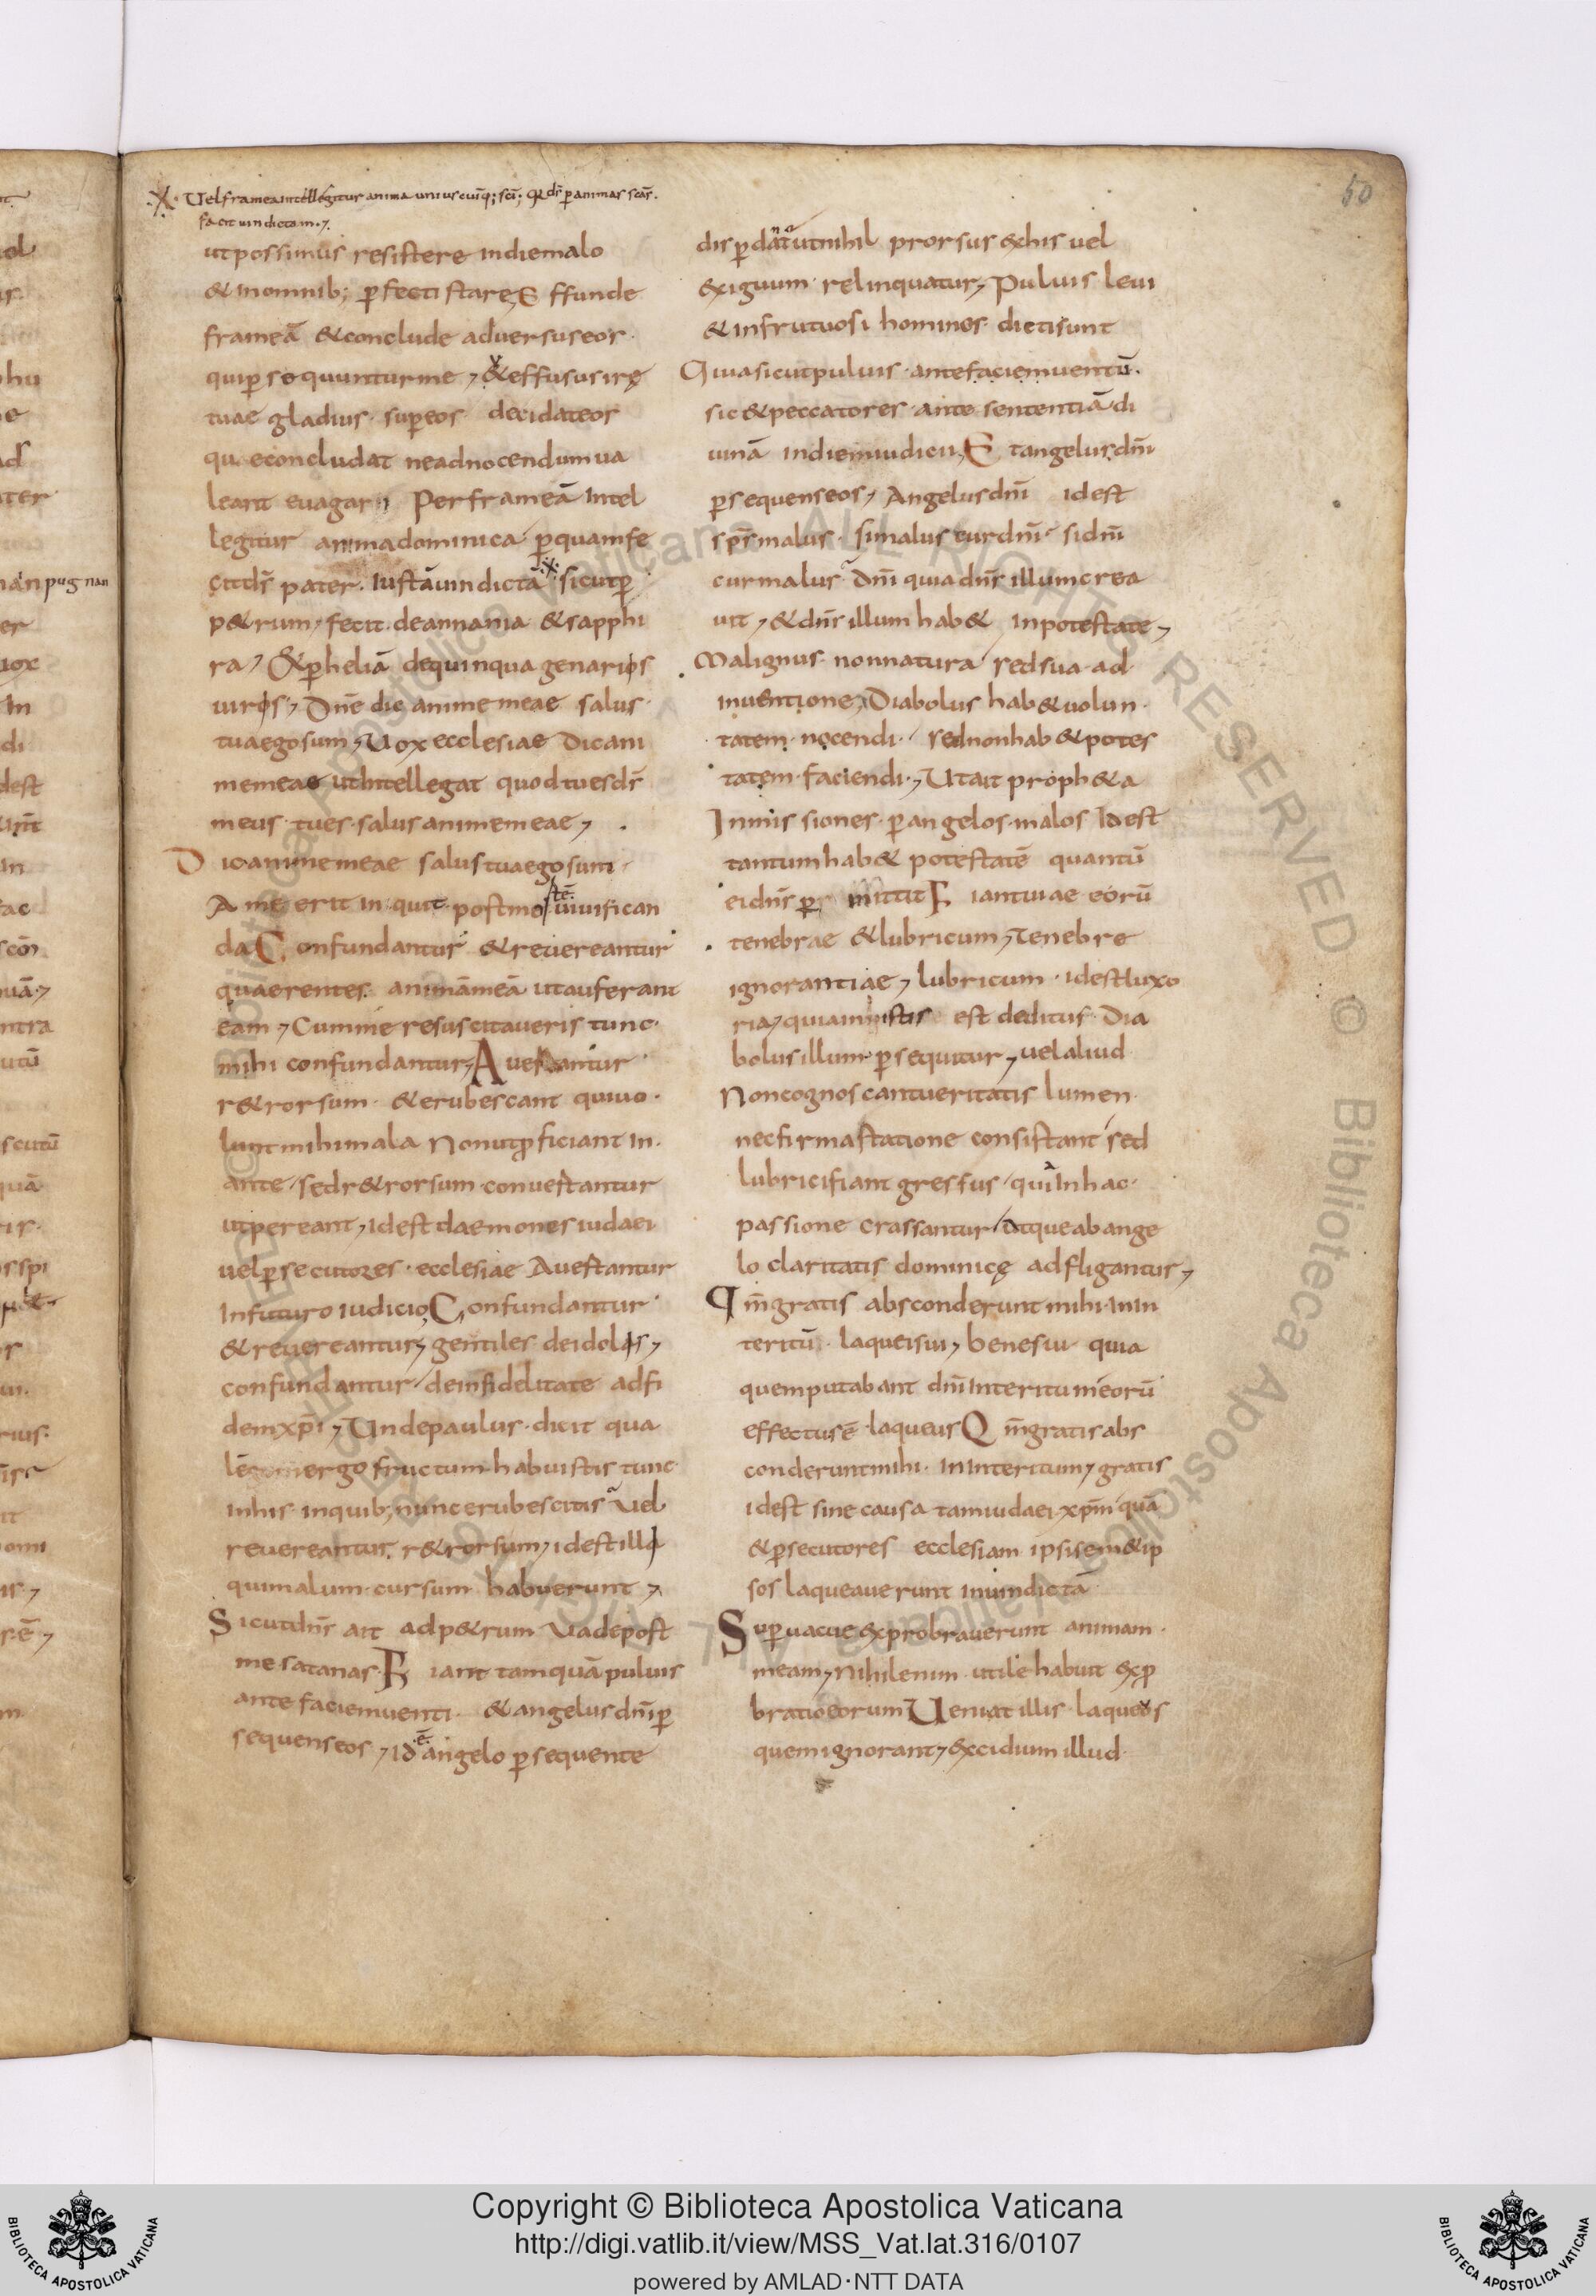 50
Vel framea intellegitur anima uniuscuiq; sci; q̄ dr̄ p animas scās.
facit uindictam.
ut possimus resistere in die malo
& in omnib; pfecti stare, Effunde
frameā & conclude aduersus eos
qui psequuntur me, & effusus irę
tuae gladius sup eos decidat eos
que concludat ne ad nocendum ua
leant euagari Per frameā intel
legitur anima dominica p quam fe
cit dr̄ pater. iustā uindictā sicut p
p&rum, fecit de annania & sapphi
ra, & p heliā de quinquagenarios
uiros, Dn̄e dic anime meae salus
tua ego sum, Uox ecclesiae dic ani
me meae ut intellegat quod tu es dr̄
meus tu es salus anime meae,
Dic anime meae salus tua ego sum
A me erit inquit postmo uiuifican
da Confundantur & reuereantur
quaerentes animā meā ut auferant
eam, Cum me resuscitaueris tunc
mihi confundantur, Auertantur
r&rorsum & erubescant qui uo
lunt mihi mala Non ut pficiant in
ante, sed r&rorsum conuertantur
ut pereant, id est daemones iudaei
uel psecutores ecclesiae Auertantur
in futuro iudicio, Confundantur
& reuereantur, gentiles de idolis,
confundantur de infidelitate ad fi
dem xp̄i, Unde paulus dicit qua
lem ergo fructum habuistis tunc
in his in quib; nunc erubescitis Vel
reuereantur r&rorsum, id est illa
qui malum cursum habuerunt,
Sicut dn̄s ait ad p&rum Vade post
me satanas. Fiant tamquā puluis
ante faciem uenti & angelus dn̄i p
sequens eos, id ē angelo psequente
dispdāt ut nihil prorsus ex his uel
exiguum relinquatur, Puluis leui
& infrutuosi homines dicti sunt
Quia sicut puluis ante faciem uentū
sic & peccatores ante sententiā di
uinā in die iudicii, Et angelus dn̄i
psequens eos, Angelus dn̄i id est
sp̄s malus. si malus cur dn̄i. si dn̄i
cur malus Dn̄i quia dn̄s illum crea
uit, & dn̄s illum hab& in potestate,
Malignus non natura sed sua ad
inuentione, Diabolus hab& uolun
tatem nocendi. sed non hab& potes
tatem faciendi, Ut ait proph&a
Inmissiones p angelos malos id est
tantum hab& potestatē quantū
ei dn̄s p mittit Fiant uiae eorū
tenebrae & lubricum, Tenebre
ignorantiae, lubricum id est luxo
ria, quia in istis est deditus Dia
bolus illum psequitur, uel aliud
Non cognoscant ueritatis lumen
nec firma statione consistant sed
lubrici fiant gressus, qui in hac
passione crassantur, atque ab ange
lo claritatis dominicę adfligantur,
Qm̄ gratis absconderunt mihi in in
teritū laquei sui, bene sui quia
quem putabant dn̄i interitum eorū
effectus ē laqueus Qm̄ gratis abs
conderunt mihi in interitum, gratis
id est sine causa tam iudaei xp̄m quā
& psecutores ecclesiam ipsis em & ip
sos laqueauerunt in uindictā
Supuacue exprobrauerunt animam
meam, Nihil enim utile habuit exp
bratio eorum Ueniat illis laqueus
quem ignorant, excidium illud
Copyright © Biblioteca Apostolica Vaticana
http://digi.vatlib.it/view/MSS_Vat.lat.316/0107
powered by AMLAD·NTT DATA